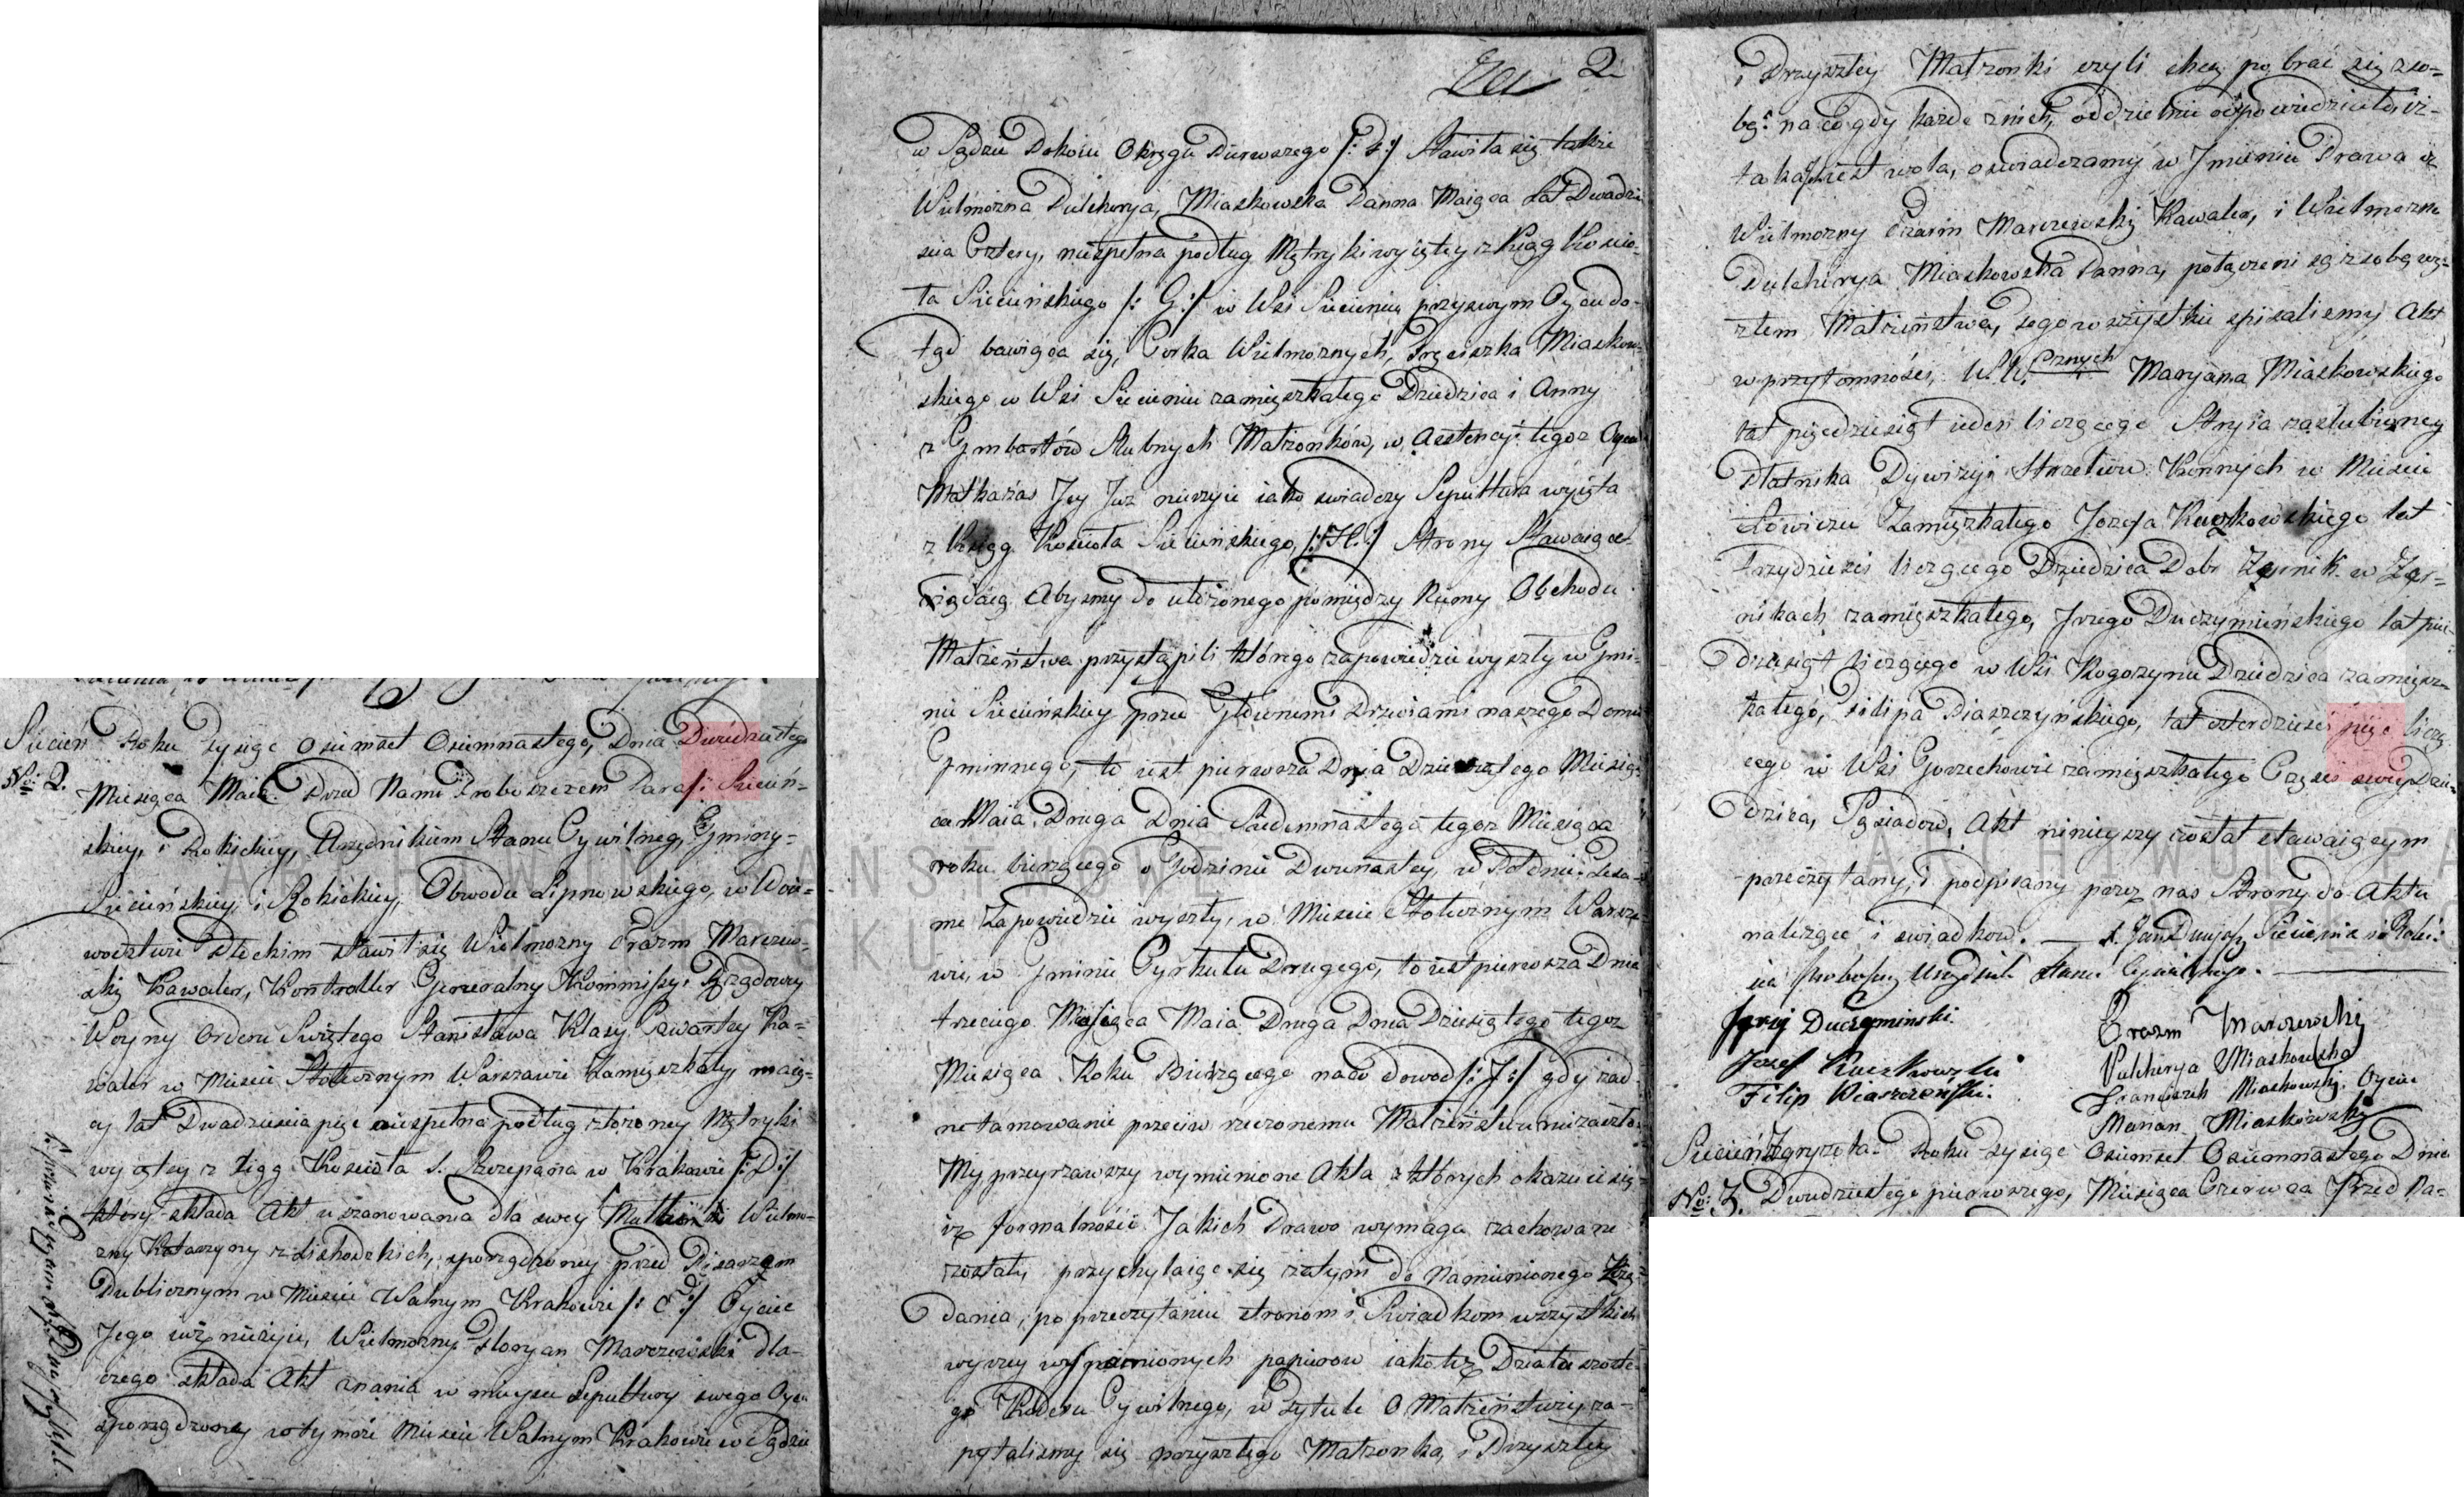 Siecień Roku Tysiąc Osiemset Osiemnastego, Dnia Dwudziestego
No: 2. Miesiąca Maia. Przed Nami Proboszczem Paraf: Siecień-
skiey, i Rokickiey, Urzędnikiem Stanu Cywilneg, Gminy-
Siecieńskiey i Rokickiey, Obwodu Lipnowskiego, w Woie-
wodztwie Płockim stawił się Wielmozny Erazm Marczew-
ski Kawaler, Kontroller Generalny Kommissyi Rządowey
Woyny Orderu Swiętego Stanisława Klasy Czwartey Ka-
waler w Miescie Stołecznym Warszawie Zamięszkały maią-
cy lat Dwadziescia pięć niespełna podług złożoney Metryki
wyiętey z Xiąg Koscioła S. Szczepana w Krakowie /:D:/
ktory składa Akt uszanowania dla swey Matki Wielmo-
zny Katarzyny z Lichockich, sporządzoney przed Pisarzem
Publicznym w Miescie Wolnym Krakowie /: E:/ Oyciec
Jego iuż nieżyie, Wielmozny Floryan Marczewski dla-
czego składa Akt znania w mieysce Sepultury swego Oyca
sporządzoney w tymże Miescie Wolnym Krakowie w Sądzie
2
w Sądzie Pokoiu Okręgu Pierwszego /: F:/ Stawiła się także
Wielmożna Pulcherya, Miaskowska Panna Maiąca Lat Dwadzie
scia Cztery, niespełna podług Metryki wyiętey z Xiąg Koscio-
ła Siecieńskiego /: G:/ w Wsi Siecieniu przy swym Oycu do-
tąd bawiąca się, Corka Wielmoznych, Franciszka Miaskow-
skiego w Wsi Siecieniu zamięszkałego Dziedzica i Anny
z Gmbartów Slubnych Małżonków, w Asstencyi tegoz Oyca
Matka zaś Jey Juz nieżyie iako swiadczy Sepultura wyięta
z Xsiąg Kosciola Siecieńskiego, /:H:/ Strony Stawaiące
żądaią Abysmy do ułożonego pomiędzy Niemy Obchodu
Małżeństwa przystąpili którego zapowiedzie wyszły w Gmi-
nie Siecieńskiey przed Głównemi Drzwiami naszego Domu
Gminnego, to iest pierwsza Dnia Dziesiątego Miesią-
ca Maia Druga Dnia Siedemnastego tegoz Miesiąca
roku bieżącego o Godzinie Dwunastey, w Południe. Też sa-
me Zapowiedzie wyszły, w Miescie Stołecznym Warsza
wie, w Gminie Cyrkułu Drugego, to iest pierwsza Dnia
trzeciego Miesiąca Maia Druga Dnia Dziesiątego tegoz
Miesiąca Roku Bieżącego na co dowod /:J:/ gdy żad-
ne tamowanie przeciw rzeczonemu Małżeństwu niezaszło.
My przeyrzawszy wymienione Akta z których okazuie się
iż formalnosci Jakich Prawo wymaga zachowane
zostały przychylaiąc się zatym do Namienionego żżą-
dania, po przeczytaniu stronom i Swiadkom wszystkich
wyzey wspomnionych papierow iako też Działu szoste-
go Kodexu Cywilnego, w Tytule O Małżeństwie, za-
pytalismy się przyszłego Małżonka, i Przyszłey
i Przyszłey Małżonki czyli chcą pobrać się z so-
bą: na co gdy każde z nich, oddzielnie odpowiedziało iż-
taka iest wola, oswiadczamy w Jmieniu Prawa iż
Wielmozny Erazm Marczewski Kawaler, i Wielmożna
Pulcherya Miaskowska Panna, połączeni są z sobą wę-
złem Małżeństwa, czego wszystkie spisalismy Akt
w przytomnosci, W. W. Maryana Miaskowskiego
lat pięćdziesiąt ieden liczącego Stryia zaslubioney
Płatnika Dywizyi Strzelców Konnych w Miescie
Łowiczu Zamięszkałego Jozefa Kuczkowskiego lat
trzydziesci liczącego Dziedzica Dobr Żernik w Żer-
nikach zamięszkałego, Jerzego Duczymińskiego lat pięć-
dziesiąt liczącego w Wsi Rogożynie Dziedzica zamięsz-
kałego, Filipa Piaszczynskiego, lat czterdziesci pięć liczą-
cego w Wsi Gorzechowie zamięszkałego Częsci swey Dzie-
dzica, Sąsiadow, Akt ninieyszy został stawaiącym
przeczytany, i podpisany przez nas Strony do Aktu
nalezące i swiadkow. —
Proboszcz Urzędnik Stanu Cywilnego.
Jerzy Duczyminski. Erazm Marczewski
Jozef Kuczkowski Pulcherya Miaskowska
Filip Piaszczeński. Franciszek Miaskowski Oyciec
Marian Miaskowski
Siecień Zgryzota Roku Tysiąc Osiemset Osiemnastego Dnia
No: 3. Dwudziestego pierwszego, Miesiąca Czerwca Przed Na-
ARCHIWUM PAŃSTWOWE